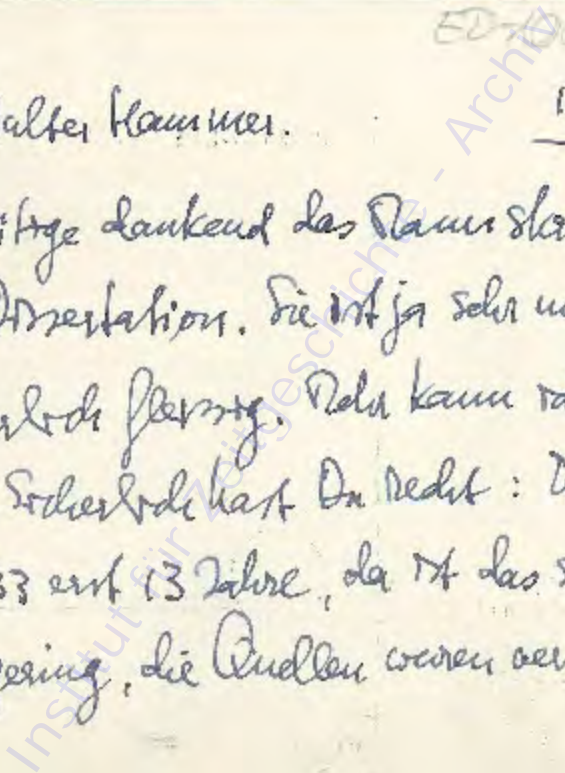 ED-106
alter Hammer.
itige dankend das Manuskr
Dissertation. Sie ist ja sehr
erlich fleissig. Mehr kann
Sicherlich hast Du Recht: D
33 erst 13 Jahre, da ist das
ering, die Quellen waren ver
Institut für Zeitgeschichte - Archiv